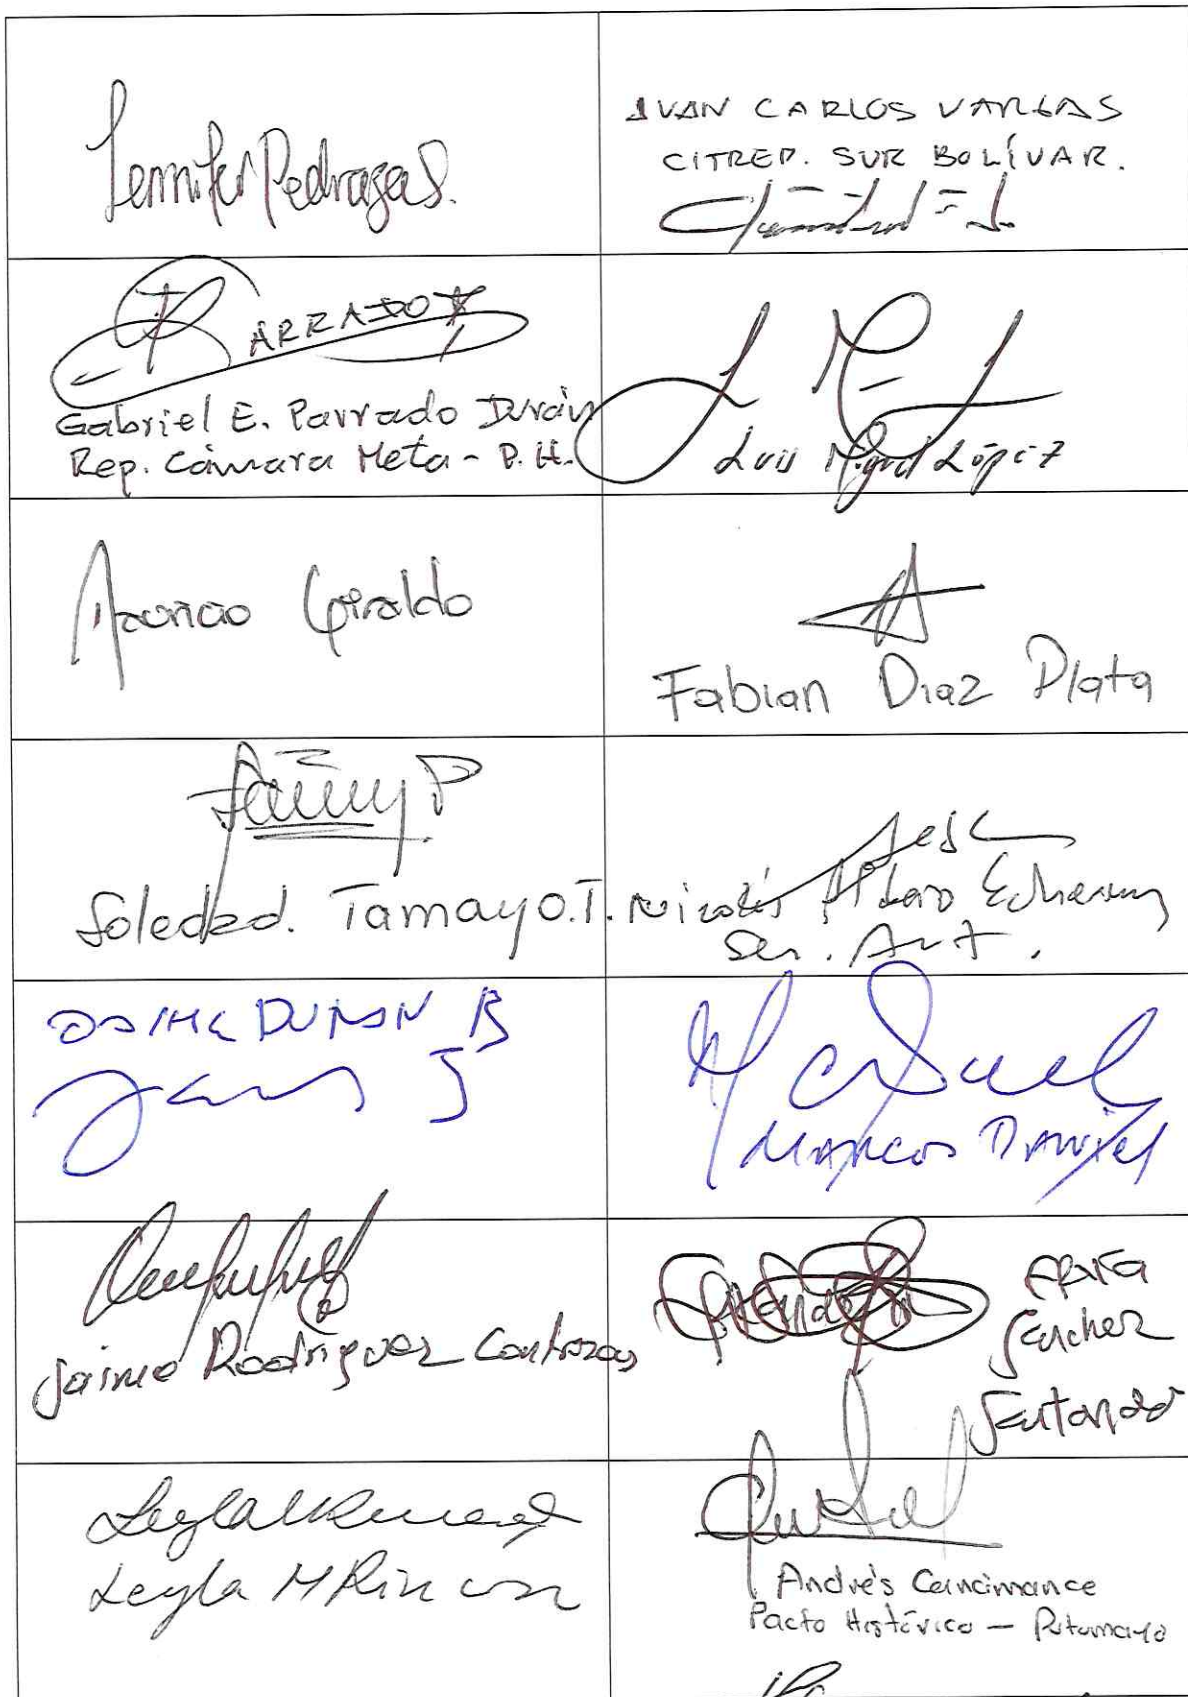 Jennifer Pedraza S.
IVAN CARLOS VARGAS
CITREP. SUR BOLÍVAR.
PARRADO
Gabriel E. Parrado Durán
Rep. Cámara Meta - P. H.
Luis Miguel López
Mauricio Giraldo
Fabian Diaz Plata
Soledad. Tamayo.T.
Nicolás Albeiro Echeverry
Ser. Ant.
JAIME DURAN B
MARCOS DANIEL
Jaime Rodriguez Contreras
Erika
Sanchez
Santander
Leyla M Rincon
Andrés Cancimance
Pacto Histórico - Putumayo